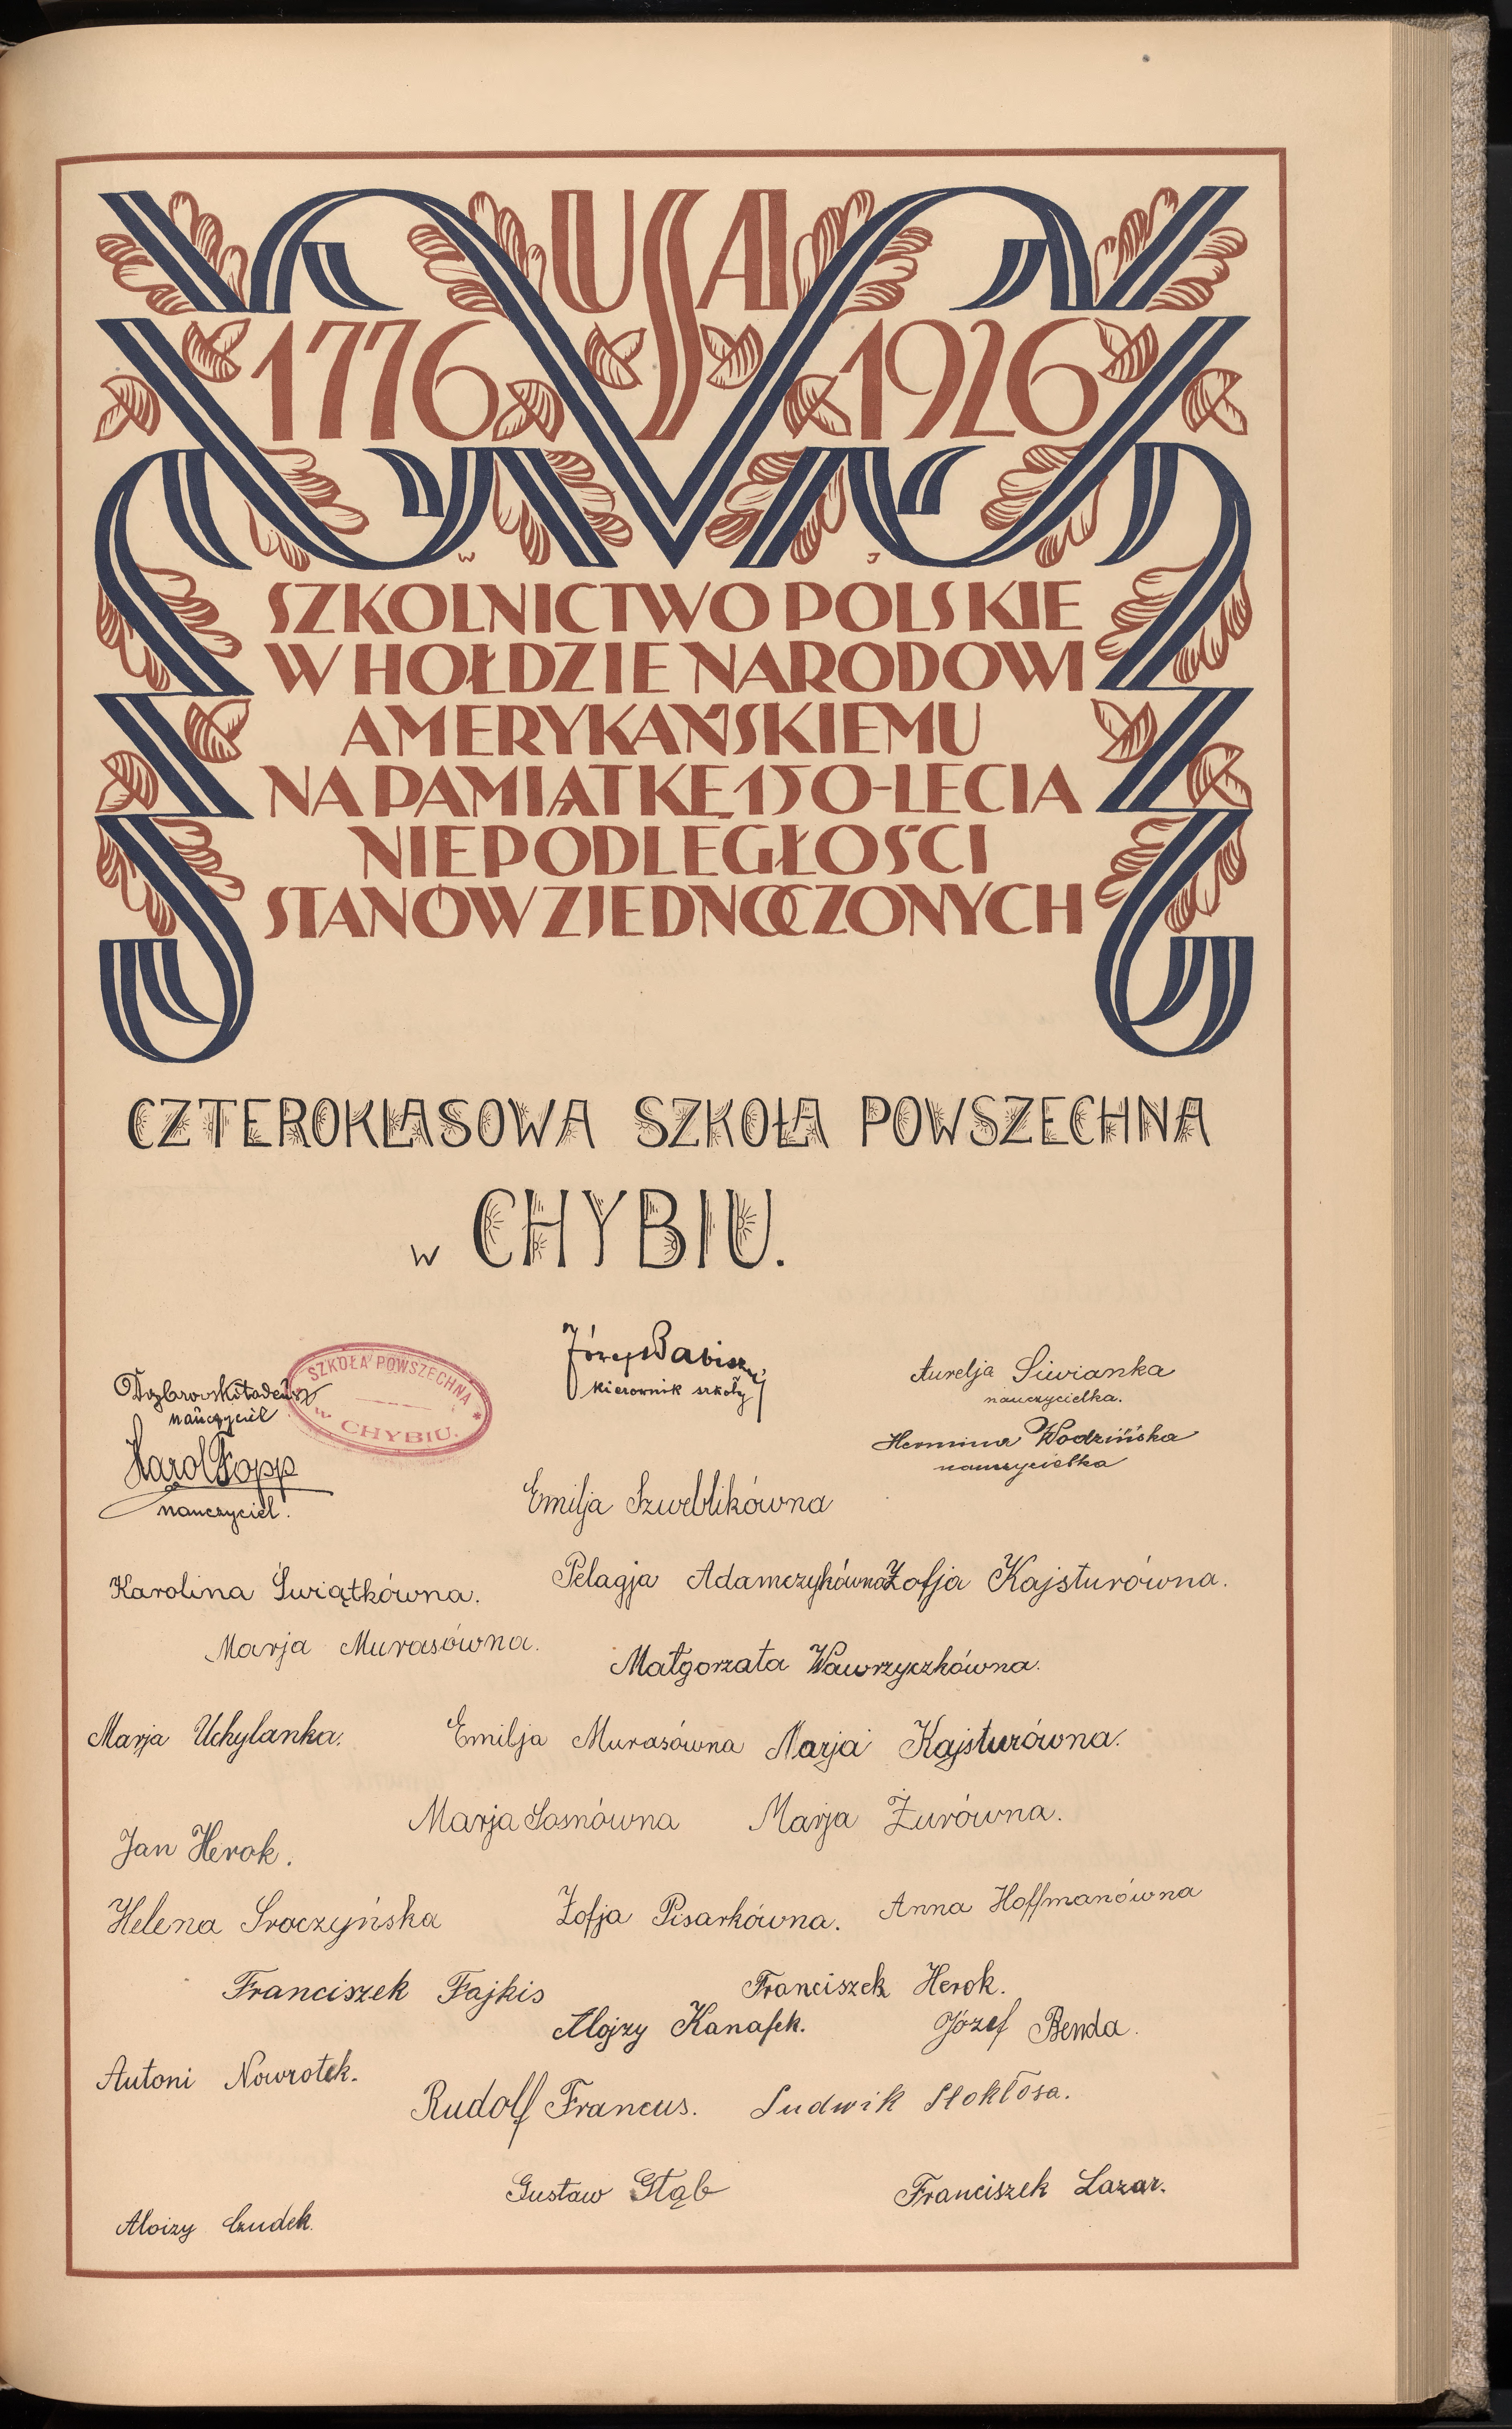 USA
1776 1926
W J
SZKOLNICTWO POLSKIE
W HOŁDZIE NARODOWI
AMERYKAŃSKIEMU
NA PAMIĄTKĘ 150-LECIA
NIEPODLEGŁOŚCI
STANÓW ZJEDNOCZONYCH
CZTEROKLASOWA SZKOŁA POWSZECHNA
w CHYBIU.
SZKOŁA POWSZECHNA
w CHYBIU.
Józef
kierownik szkoły
Dąbrowski Tadeusz
nauczyciel
Karol Fopp
nauczyciel.
Aurelja Siwianka
nauczycielka.
Hermina Wodzińska
nauczycielka
Emilja Szweblikówna
Karolina Świątkówna.
Pelagja Adamczykówna Zofja Kajsturówna.
Marja Murasówna.
Małgorzata Wawrzyczkówna.
Marja Uchylanka.
Emilja Murasówna Marja Kajsturówna.
Marja Sosnówna Marja Żurówna.
Jan Herok.
Helena Sroczyńska
Zofja Pisarkówna. Anna Hoffmanówna
Franciszek Fajkis
Franciszek Herok.
Alojzy Kanafek.
Józef Benda.
Antoni Nowrotek.
Rudolf Francus. Ludwik Stokłosa.
Gustaw Głąb
Franciszek Lazar.
Aloizy Czudek.